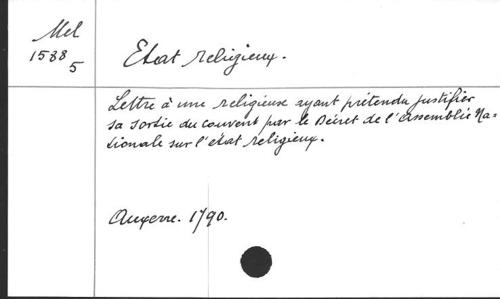 Mel
1588
5
Etat religieux.
Lettre à une religieuse ayant prétendu justifier
sa sortie du couvent par le Décret de l'assemblée Na-
tionale sur l'état religieux.
Auxerre. 1790.